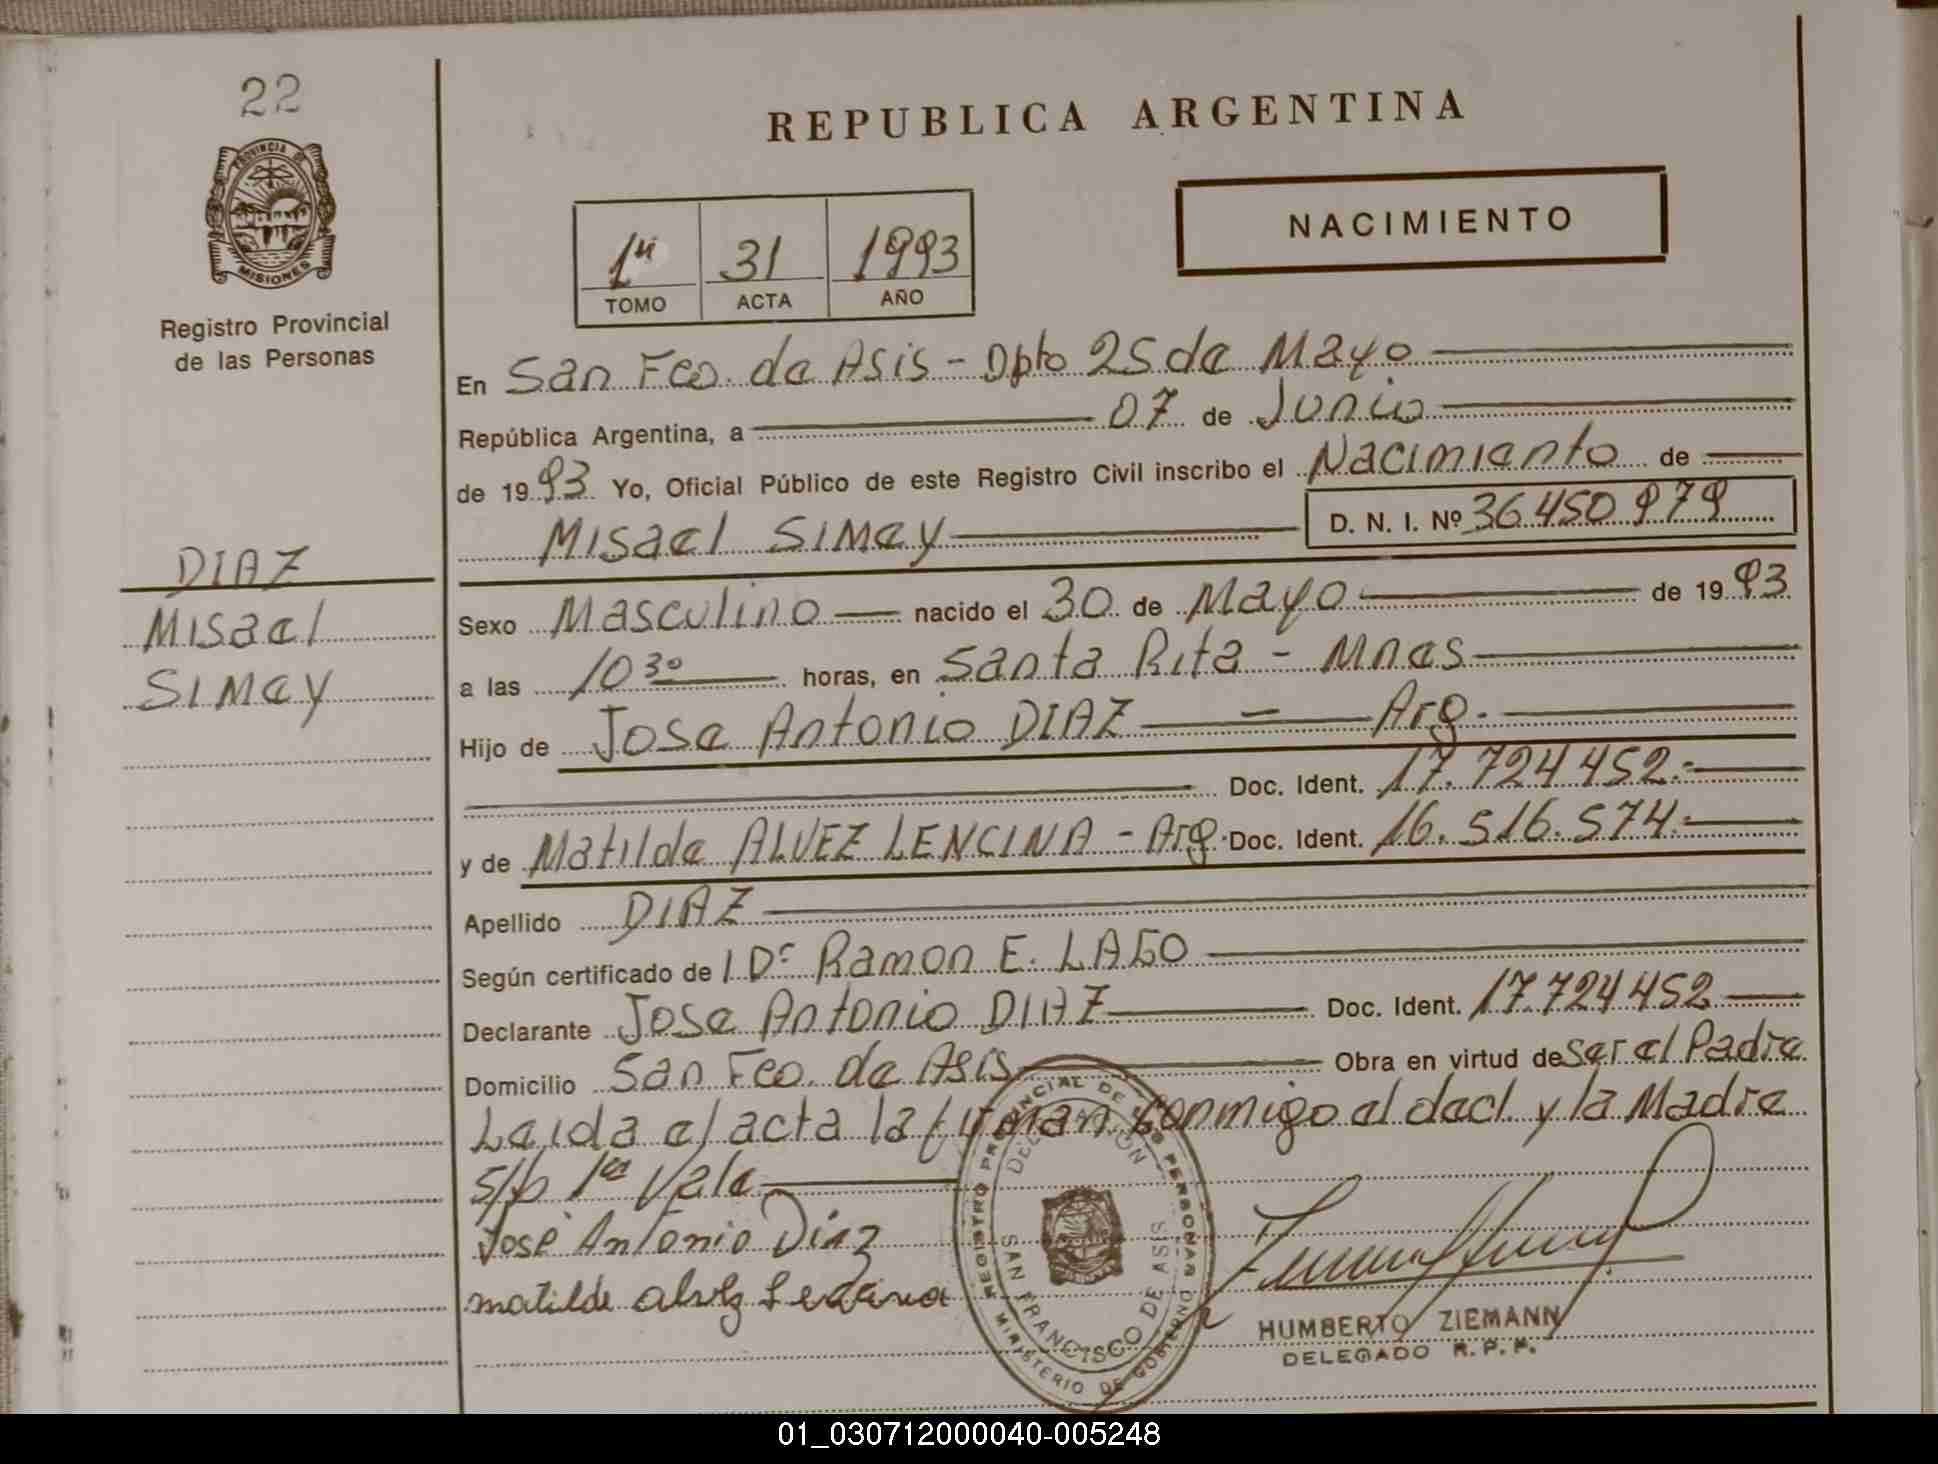 22
PROVINCIA DE
MISIONES
Registro Provincial
de las Personas
DIAZ
Misael
Simey
REPUBLICA ARGENTINA
NACIMIENTO
1º 31 1993
TOMO ACTA AÑO
En San Fco. de Asis - Dpto 25 de Mayo
República Argentina, a 07 de Junio
de 1993 Yo, Oficial Público de este Registro Civil inscribo el Nacimiento de
Misael Simey D. N. I. Nº 36.450.979
Sexo Masculino nacido el 30 de Mayo de 1993
a las 10 30 horas, en Santa Rita - Mnes
Hijo de Jose Antonio DIAZ - Arg.
Doc. Ident. 17.724.452.-
y de Matilde ALVEZ LENCINA - Arg. Doc. Ident. 16.516.574.-
Apellido DIAZ
Según certificado de l Dr Ramon E. LAGO
Declarante Jose Antonio DIAZ Doc. Ident. 17.724.452
Domicilio San Fco. de Asis Obra en virtud de ser el Padre
Leida el acta la firman conmigo el decl. y la Madre
s/b 1ª Vale
José Antonio Diaz
matilde alvez Lencina
REGISTRO PROVINCIAL DE LAS PERSONAS
DELEGACION
SAN FRANCISCO DE ASIS
MINISTERIO DE GOBIERNO
HUMBERTO ZIEMANN
DELEGADO R. P. P.
01_030712000040-005248